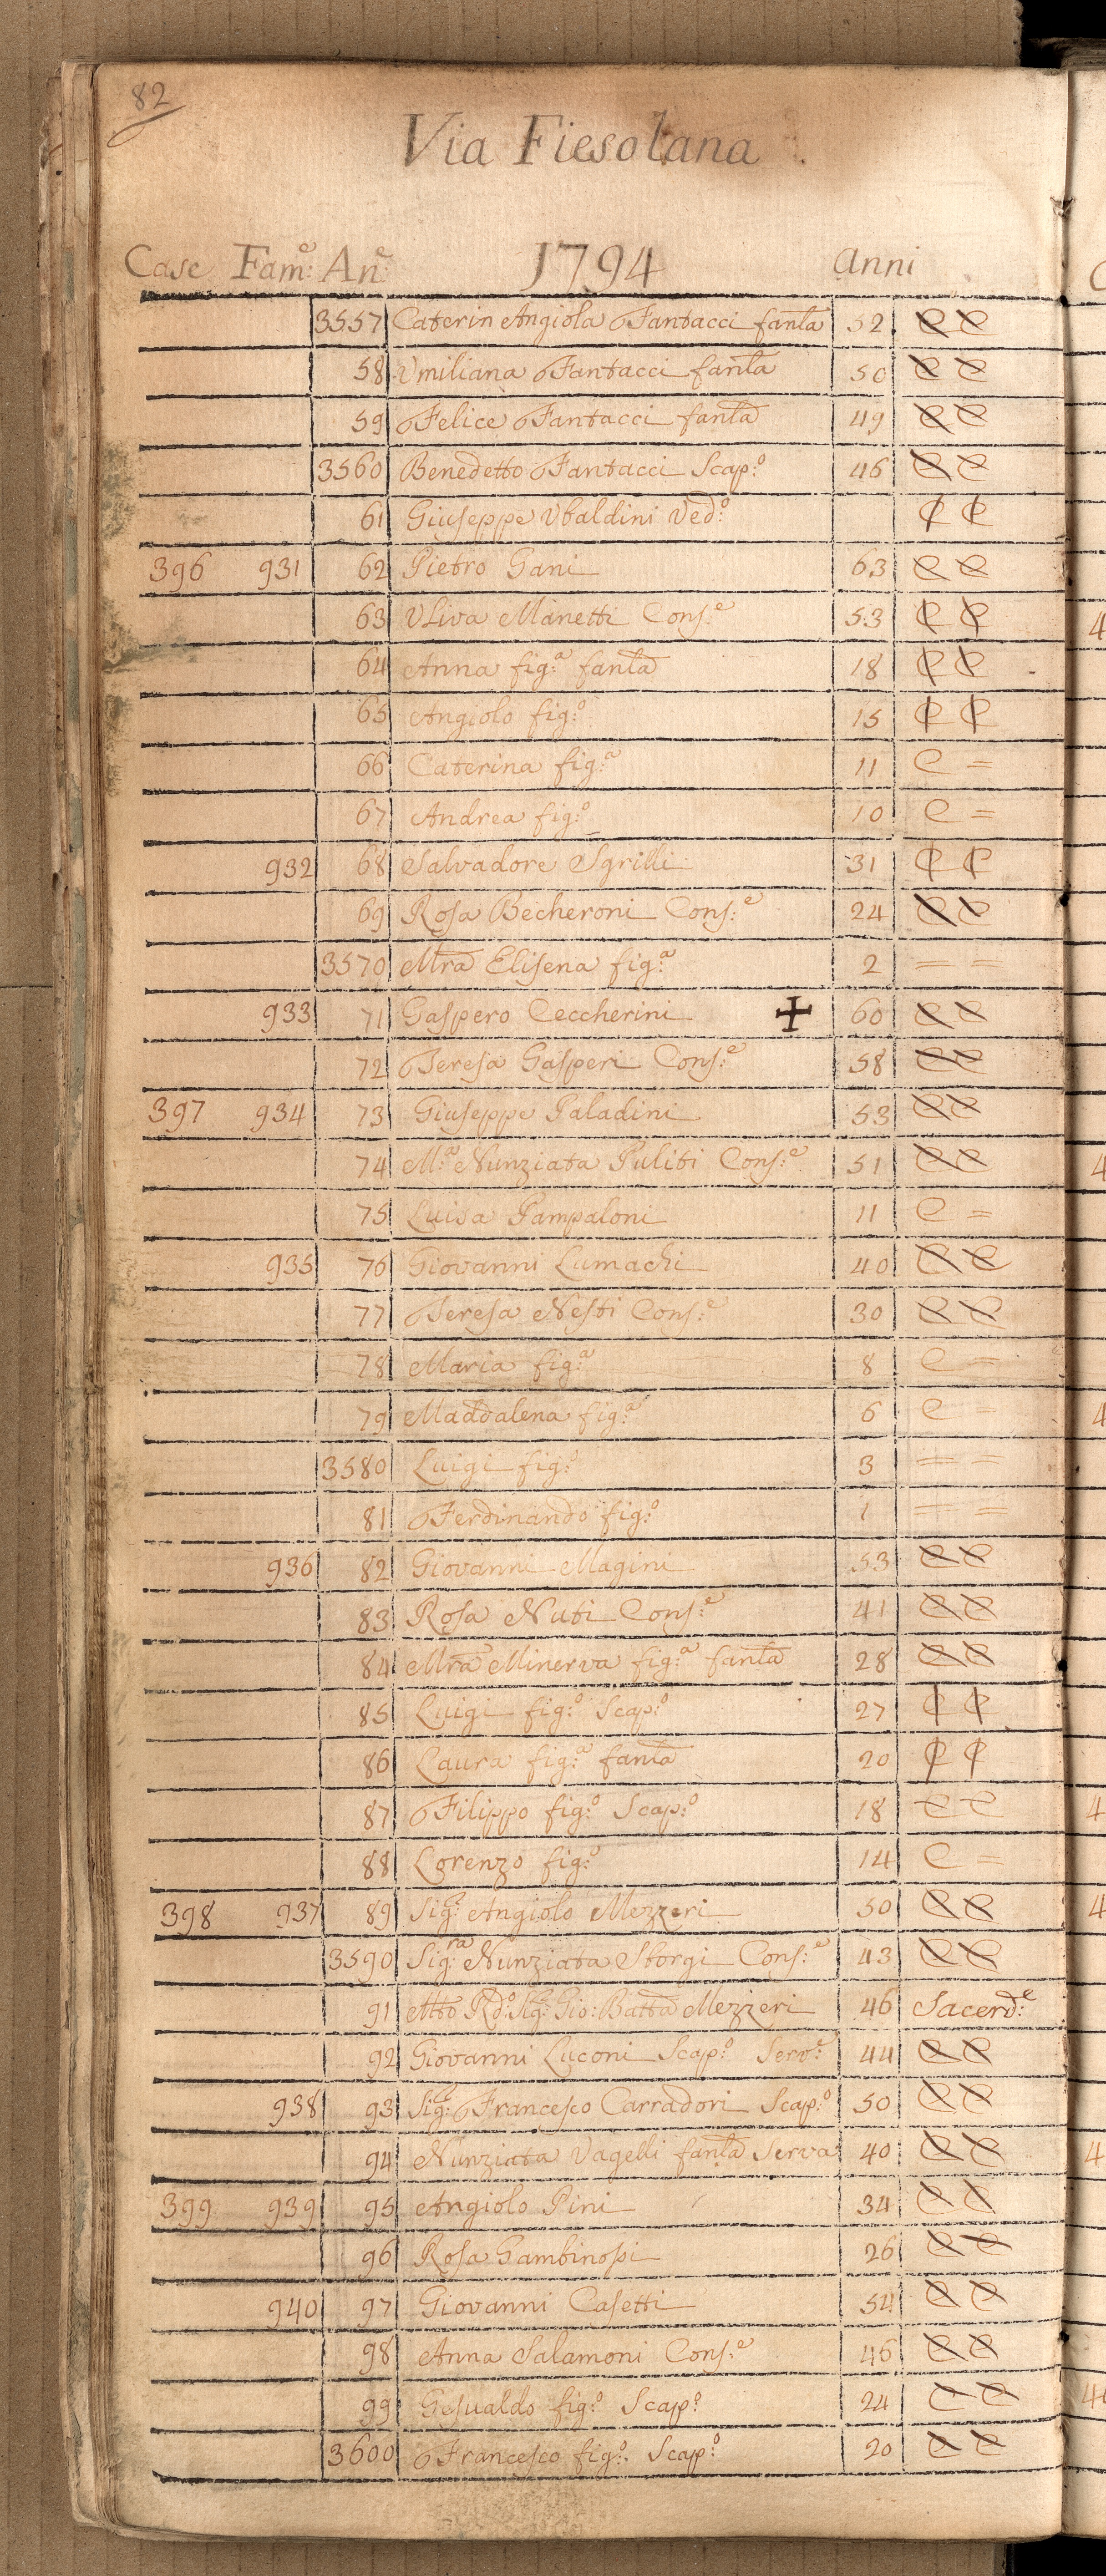 82
Via Fiesolana
Case Fam:e An:e 1794 Anni
3557 Caterin Angiola Fantacci fanla 52 C C
58 Umiliana Fantacci fanla 50 C C
59 Felice Fantacci fanla 49 C C
3560 Benedetto Fantacci Scap:o 46 C C
61 Giuseppe Ubaldini Ved:o C C
396 931 62 Pietro Gani 63 C C
63 Uliva Manetti Cons:e 53 C C
64 Anna fig:a fanla 18 C C
65 Angiolo fig:o 15 C C
66 Caterina fig:a 11 C =
67 Andrea fig:o 10 C =
932 68 Salvadore Sgrilli 31 C C
69 Rosa Becheroni Cons:e 24 C C
3570 Mra Elisena fig:a 2 = =
933 71 Gaspero Ceccherini ✚ 60 C C
72 Teresa Gasperi Cons:e 58 C C
397 934 73 Giuseppe Paladini 53 C C
74 M:a Nunziata Puliti Cons:e 51 C C
75 Luisa Pampaloni 11 C =
935 76 Giovanni Lumachi 40 C C
77 Teresa Nesti Cons:e 30 C C
78 Maria fig:a 8 C =
79 Maddalena fig:a 6 C =
3580 Luigi fig:o 3 = =
81 Ferdinando fig:o 1 = =
936 82 Giovanni Magini 53 C C
83 Rosa Nuti Cons:e 41 C C
84 Mra Minerva fig:a fanla 28 C C
85 Luigi fig:o Scap:o 27 C C
86 Laura fig:a fanla 20 C C
87 Filippo fig:o Scap:o 18 C C
88 Lorenzo fig:o 14 C =
398 937 89 Sig:e Angiolo Mezzeri 50 C C
3590 Sig:ra Nunziata Storgi Cons:e 43 C C
91 Mto Rdo: Sig:e Gio: Batta Mezzeri 46 Sacerd:e
92 Giovanni Luconi Scap:o Serv:e 44 C C
938 93 Sig:e Francesco Carradori Scap:o 50 C C
94 Nunziata Vagelli fanla Serva 40 C C
399 939 95 Angiolo Pini 34 C C
96 Rosa Gambinossi 26 C C
940 97 Giovanni Casetti 54 C C
98 Anna Salamoni Cons:e 46 C C
99 Gesualdo fig:o Scap:o 24 C C
3600 Francesco fig:o Scap:o 20 C C